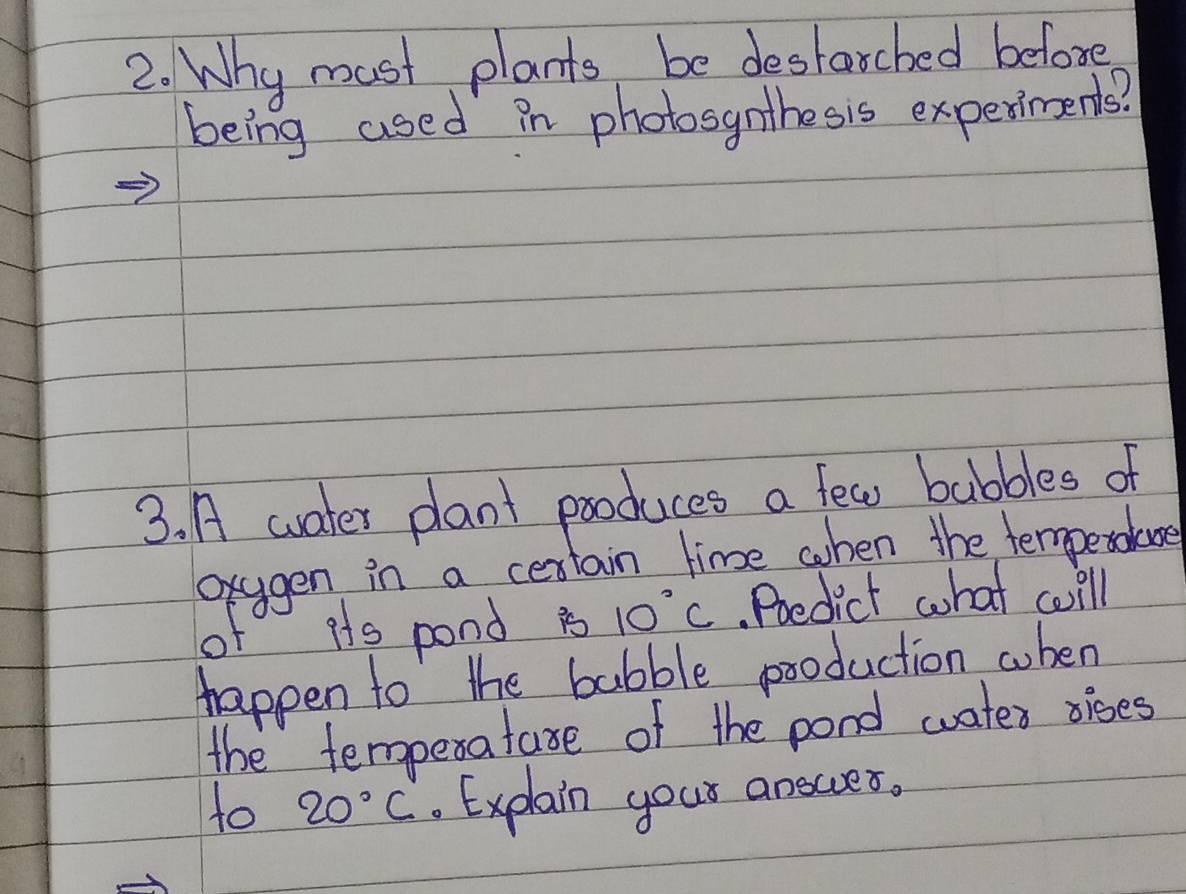 2. Why must plants be destarched before
being used in photosynthesis experiments?
⇒
3. A water plant produces a few bubbles of
oxygen in a certain time when the temperature
of its pond is 10°C. Predict what will
happen to the bubble production when
the temperature of the pond water rises
to 20°C. Explain your answer.
⇒